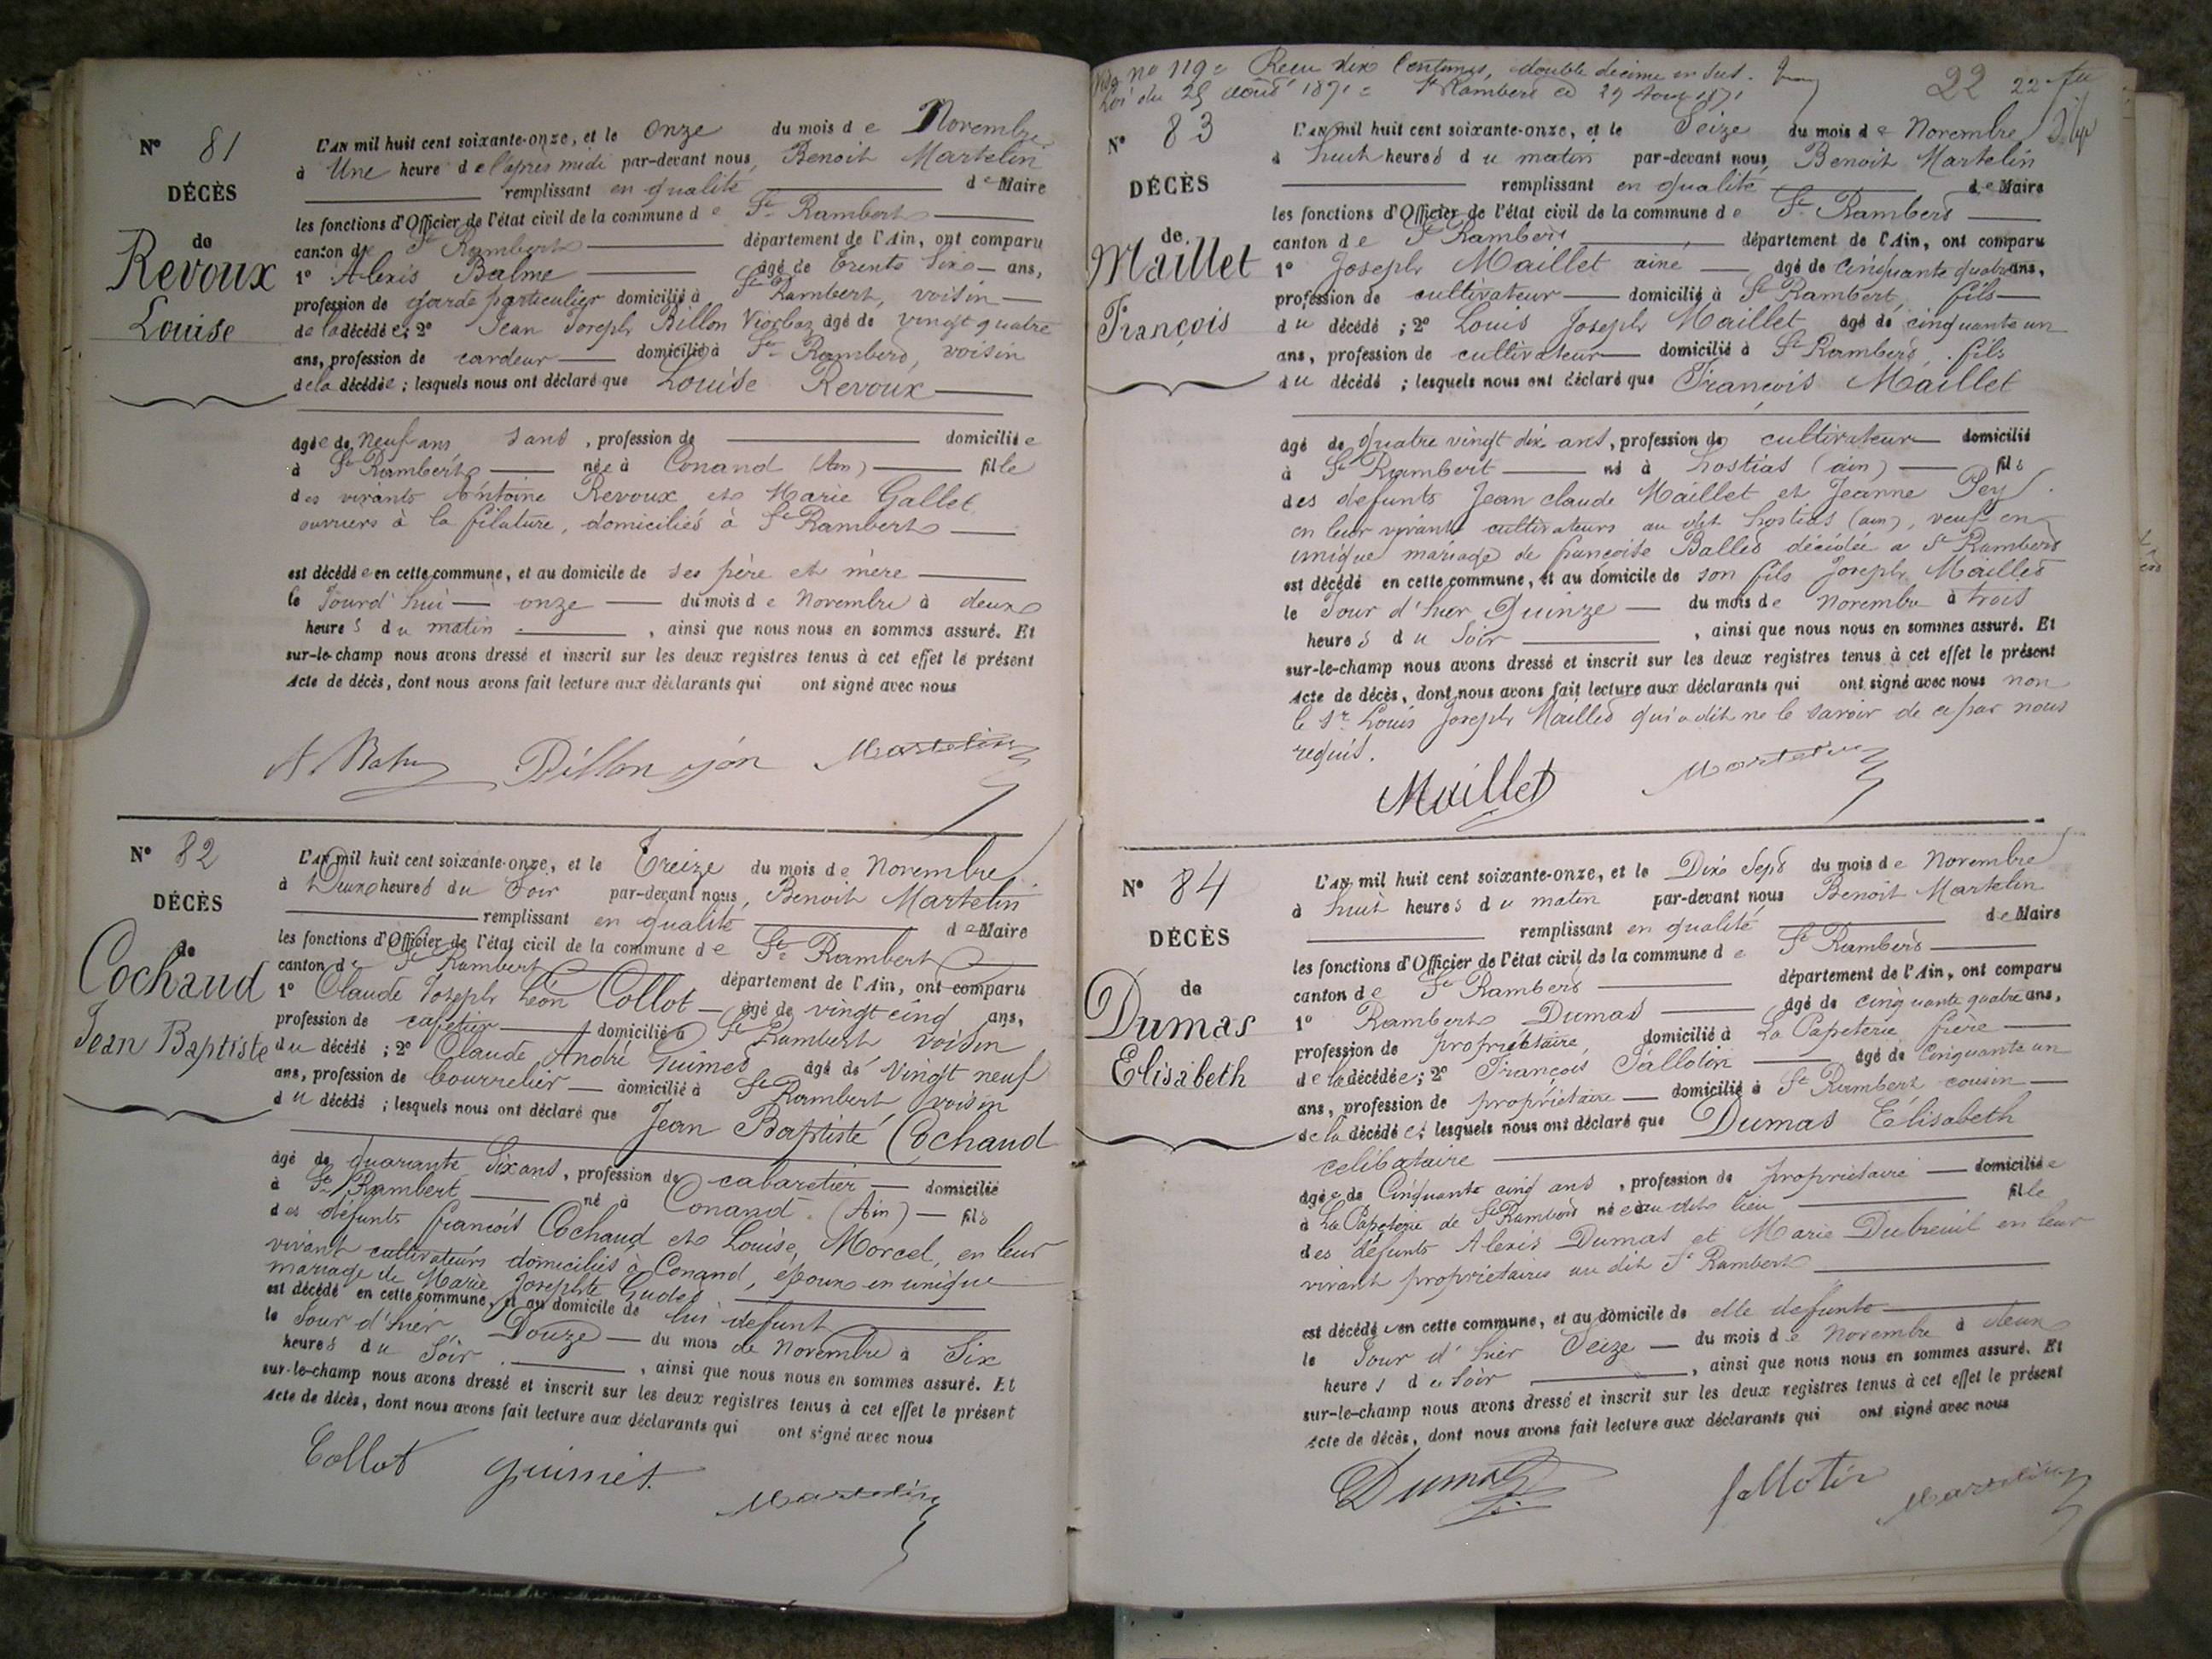 N° 81
DÉCÈS
de
Revoux
Louise
L'AN mil huit cent soixante-onze, et le onze du mois de Novembre
à Une heure de l'après midi par-devant nous, Benoit Martelin
remplissant en qualité de Maire
les fonctions d'Officier de l'état civil de la commune de St Rambert
canton de St Rambert département de l'Ain, ont comparu
1° Alexis Balme âgé de trente six ans,
profession de garde particulier domicilié à St Rambert, voisin
de la décédée; 2° Jean Joseph Billon âgé de vingt quatre
ans, profession de cardeur domicilié à St Rambert, voisin
de la décédée; lesquels nous ont déclaré que Louise Revoux
âgée de neuf ans sans, profession de domiciliée
à St Rambert née à Conand (Ain) fille
des vivants Antoine Revoux et Marie Gallet
ouvriers à la filature, domiciliés à St Rambert
est décédée en cette commune, et au domicile de ses père et mère
le Jourd'hui onze du mois de Novembre à deux
heures du matin, ainsi que nous nous en sommes assuré. Et
sur-le-champ nous avons dressé et inscrit sur les deux registres tenus à cet effet le présent
Acte de décès, dont nous avons fait lecture aux déclarants qui ont signé avec nous
Billon Martelin
N° 82
DÉCÈS
de
Cochaud
Jean Baptiste
L'AN mil huit cent soixante-onze, et le Treize du mois de Novembre
à Deux heures du Soir par-devant nous, Benoit Martelin
remplissant en qualité de Maire
les fonctions d'Officier de l'état civil de la commune de St Rambert
canton de St Rambert département de l'Ain, ont comparu
1° Claude Joseph Léon Collot âgé de vingt cinq ans,
profession de cafetier domicilié à St Rambert voisin
du décédé; 2° Claude André Guimet âgé de Vingt neuf
ans, profession de bourrelier domicilié à St Rambert voisin
du décédé; lesquels nous ont déclaré que Jean Baptiste Cochaud
âgé de quarante Six ans, profession de cabaretier domicilié
à St Rambert né à Conand (Ain) fils
des défunts françois Cochaud et Louise Morcel, en leur
vivant cultivateurs domiciliés à Conand, époux en unique
mariage de Marie Josephte
est décédé en cette commune, et au domicile de lui défunt
le Jour d'hier Douze du mois de Novembre à Six
heures du Soir, ainsi que nous nous en sommes assuré. Et
sur-le-champ nous avons dressé et inscrit sur les deux registres tenus à cet effet le présent
Acte de décès, dont nous avons fait lecture aux déclarants qui ont signé avec nous
Collot guimet
Martelin
no 119 Reçu dix Centimes, double décime en sus. 22 22
Loi du 23 août 1871 St Rambert
N° 83
DÉCÈS
de
Maillet
François
L'AN mil huit cent soixante-onze, et le Seize du mois de Novembre
à huit heures du matin par-devant nous, Benoit Martelin
remplissant en qualité de Maire
les fonctions d'Officier de l'état civil de la commune de St Rambert
canton de St Rambert département de l'Ain, ont comparu
1° Joseph Maillet ainé âgé de cinquante quatre ans,
profession de cultivateur domicilié à St Rambert, fils
du décédé; 2° Louis Joseph Maillet âgé de cinquante un
ans, profession de cultivateur domicilié à St Rambert, fils
du décédé; lesquels nous ont déclaré que François Maillet
âgé de quatre vingt dix ans, profession de cultivateur domicilié
à St Rambert né à hostias (ain) fils
des defunts Jean claude Maillet et Jeanne Pey
en leur vivant cultivateurs au dit hostias (ain), veuf en
unique mariage de françoise Ballet décédée a St Rambert
est décédé en cette commune, et au domicile de son fils Joseph Maillet
le Jour d'hier Quinze du mois de Novembre à trois
heures du Soir, ainsi que nous nous en sommes assuré. Et
sur-le-champ nous avons dressé et inscrit sur les deux registres tenus à cet effet le présent
Acte de décès, dont nous avons fait lecture aux déclarants qui ont signé avec nous non
le Sr Louis Joseph Maillet qui a dit ne le savoir de ce par nous
requis.
Maillet Martelin
N° 84
DÉCÈS
de
Dumas
Elisabeth
L'AN mil huit cent soixante-onze, et le Dix Sept du mois de Novembre
à huit heures du matin par-devant nous Benoit Martelin
remplissant en qualité de Maire
les fonctions d'Officier de l'état civil de la commune de St Rambert
canton de St Rambert département de l'Ain, ont comparu
1° Rambert Dumas âgé de cinquante quatre ans,
profession de propriétaire, domicilié à La Papeterie frère
de la décédée; 2° François Sallotin âgé de Cinquante un
ans, profession de propriétaire domicilié à St Rambert cousin
de la décédée; lesquels nous ont déclaré que Dumas Elisabeth
celibataire
âgée de Cinquante cinq ans, profession de propriétaire domiciliée
à La Papeterie de St Rambert née au dit lieu fille
des défunts Alexis Dumas et Marie Dubreuil en leur
vivant propriétaires au dit St Rambert
est décédée en cette commune, et au domicile de elle defunte
le Jour d'hier Seize du mois de Novembre à deux
heures du Soir, ainsi que nous nous en sommes assuré. Et
sur-le-champ nous avons dressé et inscrit sur les deux registres tenus à cet effet le présent
Acte de décès, dont nous avons fait lecture aux déclarants qui ont signé avec nous
Dumas Sallotin Martelin